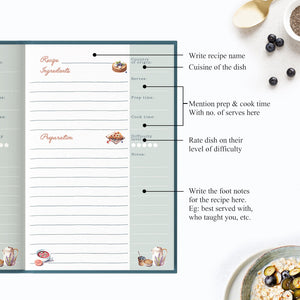 Recipe
Ingredients
Country
of origin:
Serves:
Prep time:
Cook time:
Preparation
Difficulty
level:
Notes:
Write recipe name
Cuisine of the dish
Mention prep & cook time
With no. of serves here
Rate dish on their
level of difficulty
Write the foot notes
for the recipe here.
Eg: best served with,
who taught you, etc.